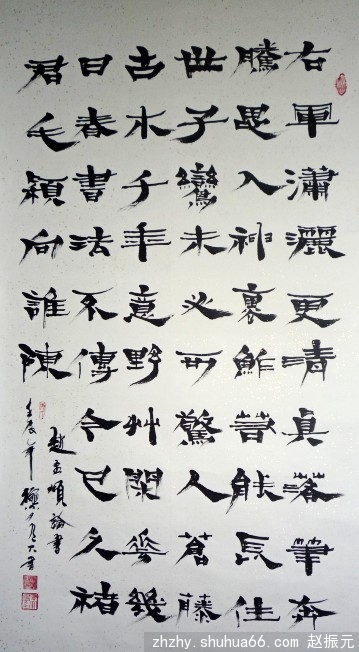 右軍瀟灑更清真落筆奔
騰思入神裹鮓若能長住
世子鸞未必可驚人蒼藤
古木千年意野艸閑花幾
日春書法不傳今已久楮
君毛穎向誰陳
趙孟頫論書
壬辰年
zhzhy.shuhua66.com 赵振元